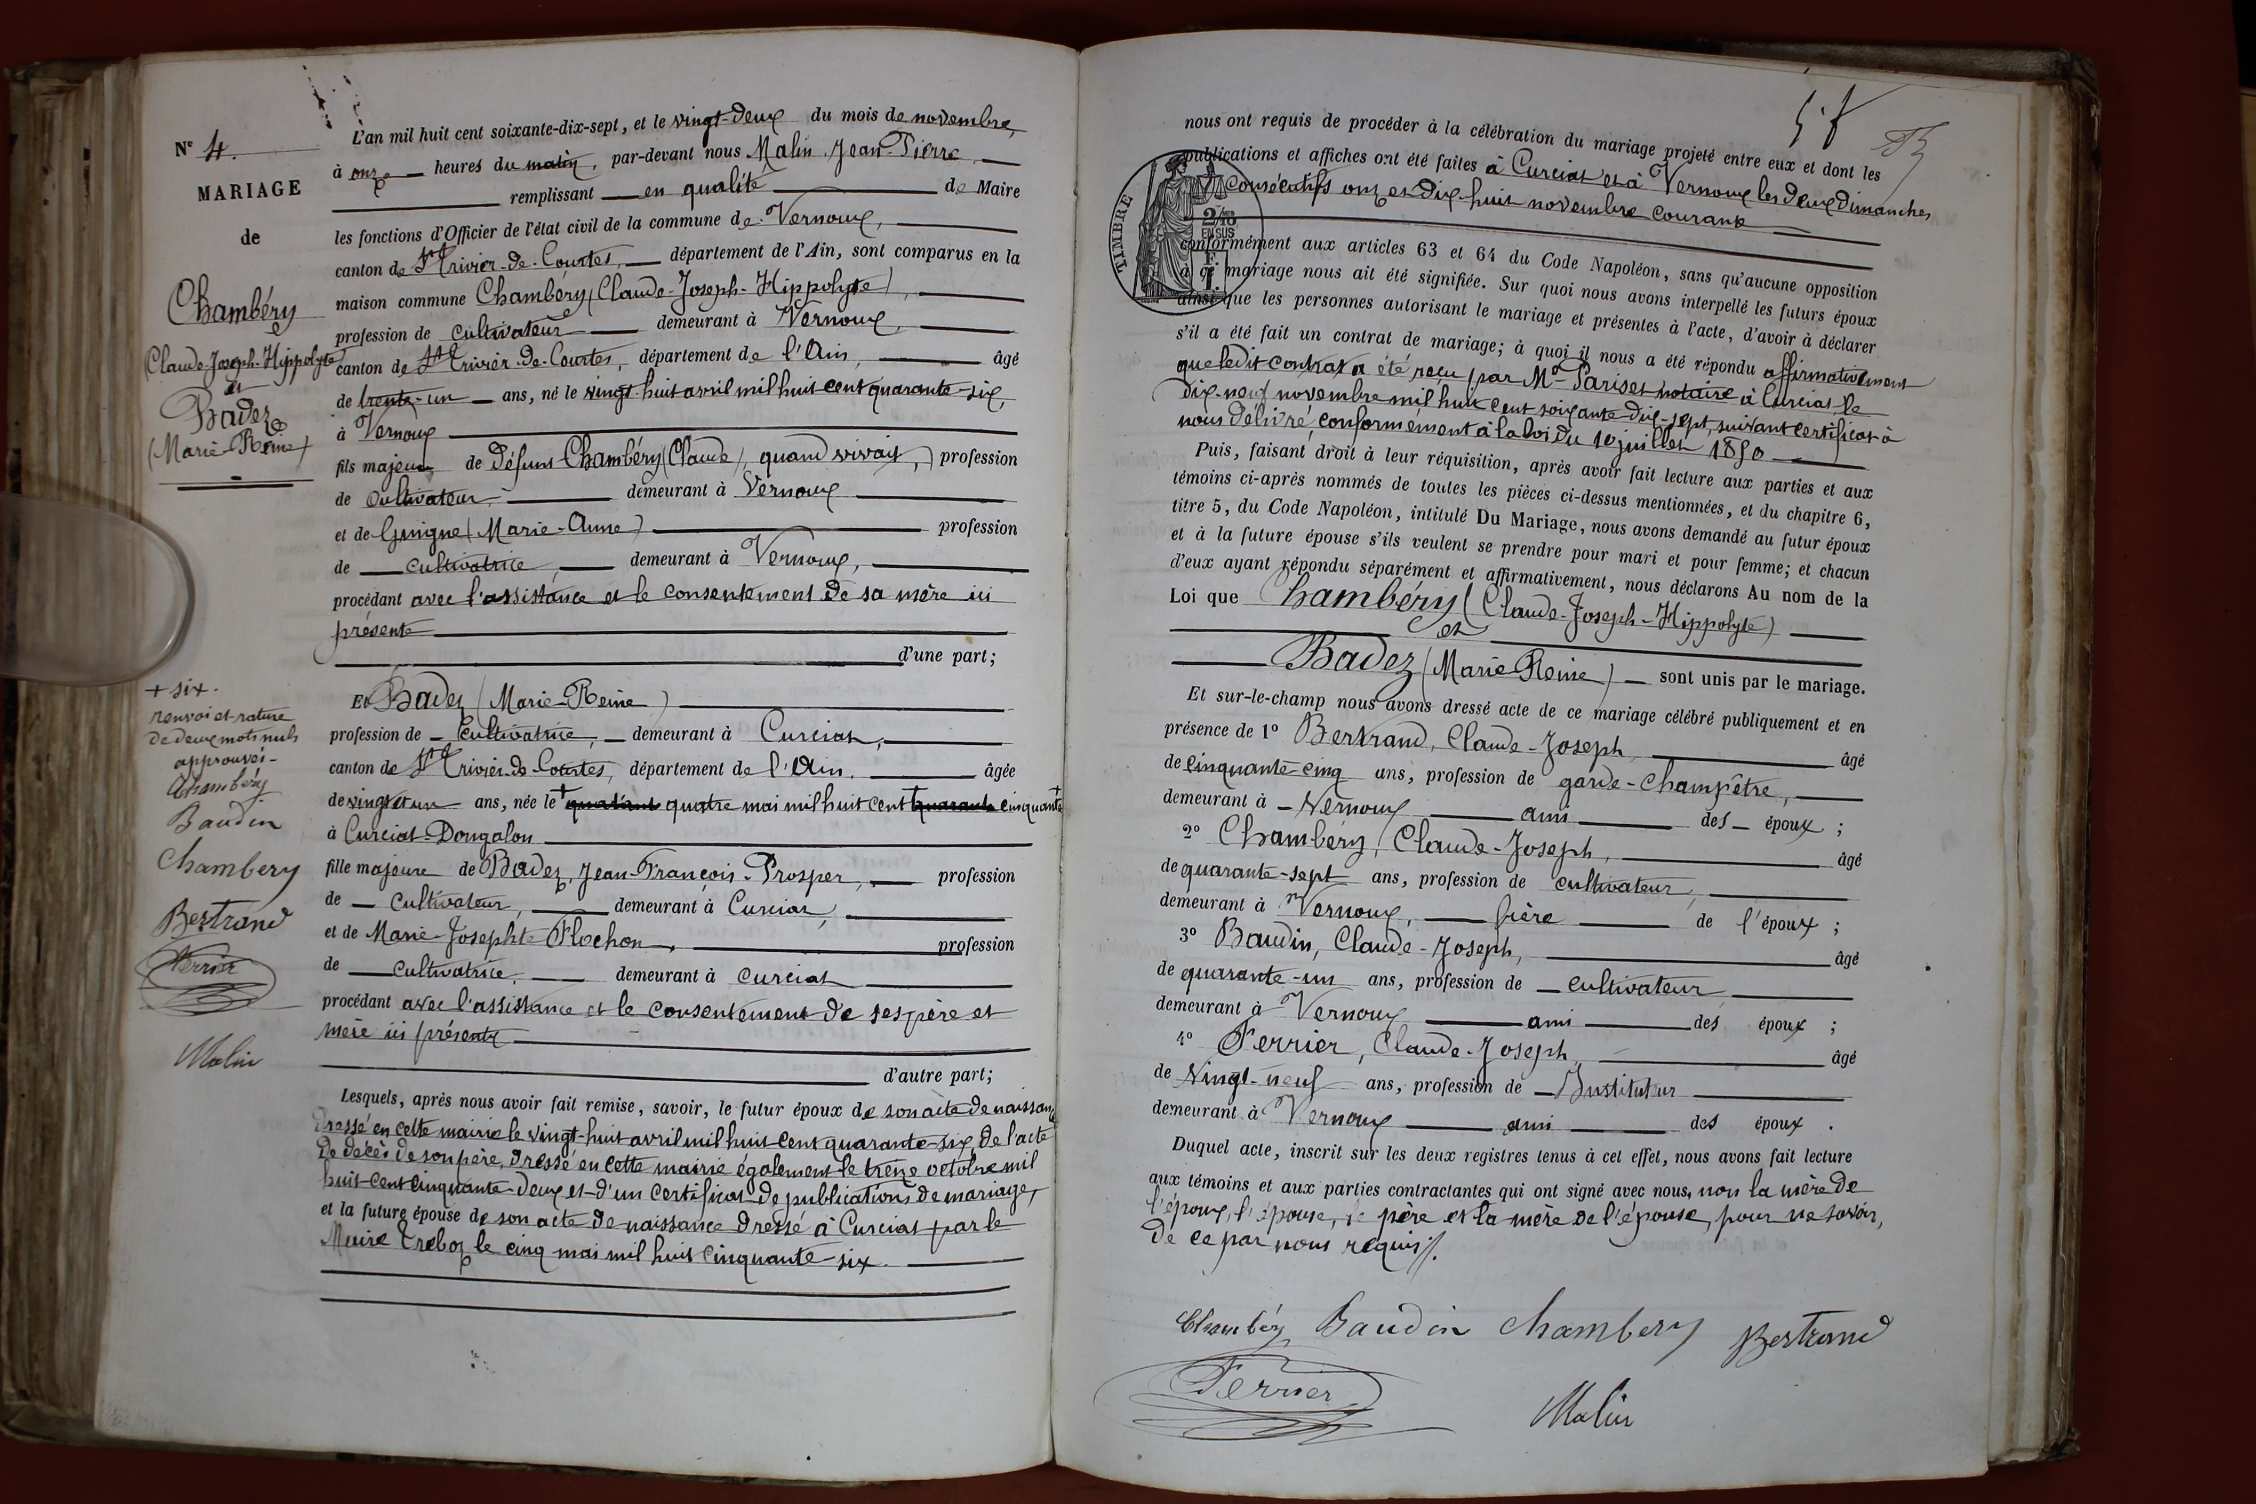 N° 4.
MARIAGE
de
Chambéry
(Claude-Joseph-Hippolyte)
et
Badez
(Marie-Reine)
+ six.
renvoi et rature
de deux mots nuls
approuvés-
Chambéry
Baudin
Chambery
Bertrand
Ferrier
Malin
L'an mil huit cent soixante-dix-sept, et le vingt-deux du mois de novembre,
à onze heures du matin, par-devant nous Malin Jean-Pierre
remplissant en qualité de Maire
les fonctions d'Officier de l'état civil de la commune de Vernoux,
canton de St Trivier-de-Courtes, département de l'Ain, sont comparus en la
maison commune Chambéry (Claude-Joseph-Hippolyte),
profession de cultivateur demeurant à Vernoux,
canton de St Trivier-de-Courtes, département de l'Ain, âgé
de trente-un ans, né le vingt-huit avril mil huit cent quarante-six,
à Vernoux
fils majeur de défunt Chambéry (Claude), quand vivait, profession
de cultivateur, demeurant à Vernoux
et de Guigne (Marie-Anne) profession
de cultivatrice, demeurant à Vernoux,
procédant avec l'assistance et le consentement de sa mère ici
présente
d'une part;
Et Badez (Marie-Reine)
profession de cultivatrice, demeurant à Curciat,
canton de St Trivier-de-Courtes, département de l'Ain, âgée
de vingt et un ans, née le + quatre mai mil huit cent quarante cinquante +
à Curciat-Dongalon
fille majeure de Badez, Jean-François-Prosper, profession
de cultivateur, demeurant à Curciat,
et de Marie-Josephte Flochon, profession
de cultivatrice, demeurant à Curciat
procédant avec l'assistance et le consentement de ses père et
mère ici présents
d'autre part;
Lesquels, après nous avoir fait remise, savoir, le futur époux de son acte de naissance
dressé en cette mairie le vingt-huit avril mil huit cent quarante-six, de l'acte
de décès de son père, dressé en cette mairie également le treize octobre mil
huit-cent cinquante-deux et d'un certificat de publications de mariage,
et la future épouse de son acte de naissance dressé à Curciat par le
Maire Treboz le cinq mai mil huit cinquante-six.
nous ont requis de procéder à la célébration du mariage projeté entre eux et dont les
publications et affiches ont été faites à Curciat et à Vernoux les deux dimanches
consécutifs onze et dix-huit novembre courant
TIMBRE
2/10
EN SUS
conformément aux articles 63 et 64 du Code Napoléon, sans qu'aucune opposition
à ce mariage nous ait été signifiée. Sur quoi nous avons interpellé les futurs époux
ainsi que les personnes autorisant le mariage et présentes à l'acte, d'avoir à déclarer
s'il a été fait un contrat de mariage; à quoi il nous a été répondu affirmativement
que ledit contrat a été reçu par Me Pariset notaire à Curciat, le
dix-neuf novembre mil huit cent soixante dix-sept, suivant certificat à
nous délivré, conformément à la loi du 10 juillet 1850
Puis, faisant droit à leur réquisition, après avoir fait lecture aux parties et aux
témoins ci-après nommés de toutes les pièces ci-dessus mentionnées, et du chapitre 6,
titre 5, du Code Napoléon, intitulé Du Mariage, nous avons demandé au futur époux
et à la future épouse s'ils veulent se prendre pour mari et pour femme; et chacun
d'eux ayant répondu séparément et affirmativement, nous déclarons Au nom de la
Loi que Chambéry (Claude-Joseph-Hippolyte)
et
Badez (Marie-Reine) sont unis par le mariage.
Et sur-le-champ nous avons dressé acte de ce mariage célébré publiquement et en
présence de 1° Bertrand, Claude-Joseph, âgé
de cinquante-cinq ans, profession de garde-champêtre,
demeurant à Vernoux ami des époux;
2° Chambéry, Claude-Joseph, âgé
de quarante-sept ans, profession de cultivateur,
demeurant à Vernoux, frère de l'époux;
3° Baudin, Claude-Joseph, âgé
de quarante-un ans, profession de cultivateur
demeurant à Vernoux ami des époux;
4° Ferrier, Claude-Joseph, âgé
de vingt-neuf ans, profession de Instituteur
demeurant à Vernoux ami des époux.
Duquel acte, inscrit sur les deux registres tenus à cet effet, nous avons fait lecture
aux témoins et aux parties contractantes qui ont signé avec nous, non la mère de
l'époux, l'épouse, le père et la mère de l'épouse, pour ne savoir,
de ce par nous requis.
Chambéry Baudin Chambery Bertrand
Ferrier Malin